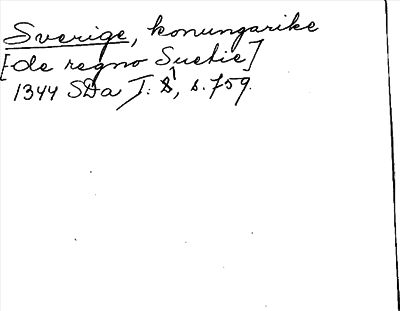 Sverige, konungarike
[de regno Suetie]
1344 SDa I: 8¹, s. 759.